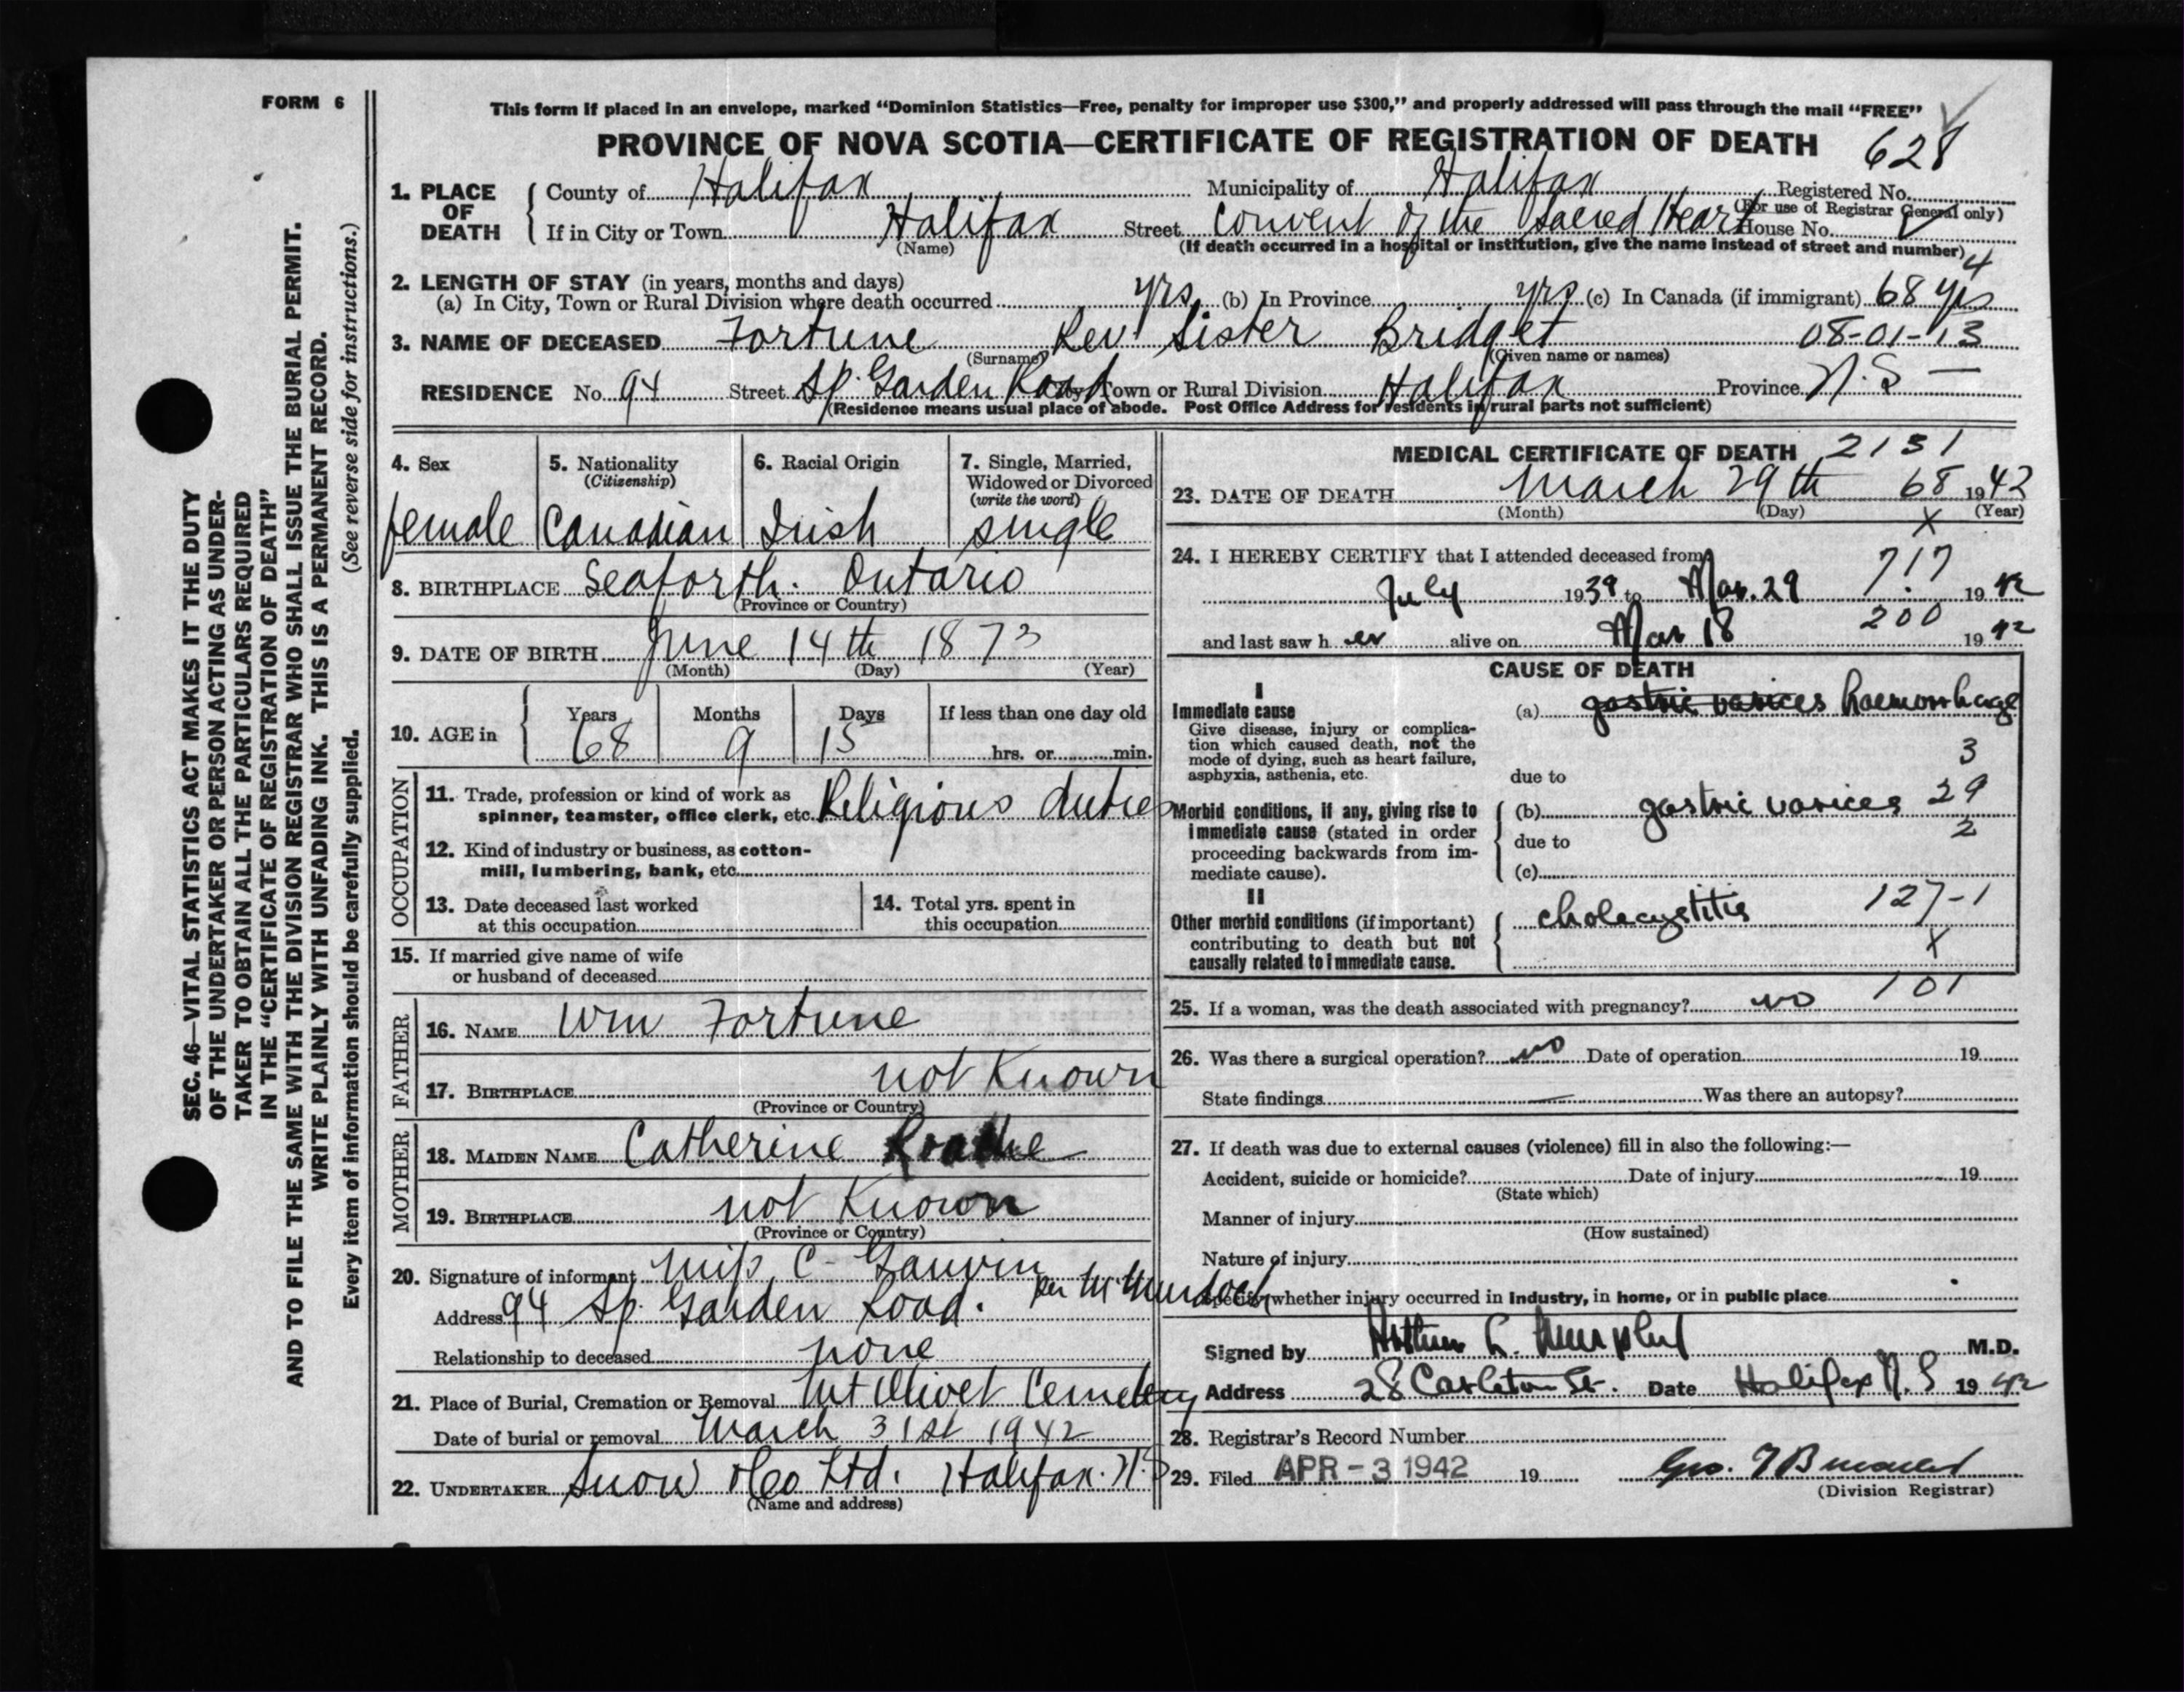 FORM 6
This form if placed in an envelope, marked “Dominion Statistics—Free, penalty for improper use $300,” and properly addressed will pass through the mail “FREE”
PROVINCE OF NOVA SCOTIA—CERTIFICATE OF REGISTRATION OF DEATH 628
1. PLACE OF DEATH
County of Halifax Municipality of Halifax Registered No.
(For use of Registrar General only)
If in City or Town Halifax Street Convent of the Sacred Heart House No.
(Name) (If death occurred in a hospital or institution, give the name instead of street and number) 4
2. LENGTH OF STAY (in years, months and days)
(a) In City, Town or Rural Division where death occurred yrs. (b) In Province yrs (c) In Canada (if immigrant) 68 yrs
3. NAME OF DECEASED Fortune Rev Sister Bridget 08-01-13
(Surname) (Given name or names)
RESIDENCE No. 94 Street Sp. Garden Road City, Town or Rural Division Halifax Province N.S —
(Residence means usual place of abode. Post Office Address for residents in rural parts not sufficient)
4. Sex
female
5. Nationality
(Citizenship)
Canadian
6. Racial Origin
Irish
7. Single, Married,
Widowed or Divorced
(write the word)
single
8. BIRTHPLACE Seaforth. Ontario
(Province or Country)
9. DATE OF BIRTH June 14th 1873
(Month) (Day) (Year)
10. AGE in
Years Months Days If less than one day old
68 9 15 hrs. or min.
OCCUPATION
11. Trade, profession or kind of work as
spinner, teamster, office clerk, etc. Religious duties
12. Kind of industry or business, as cotton-
mill, lumbering, bank, etc.
13. Date deceased last worked
at this occupation
14. Total yrs. spent in
this occupation
15. If married give name of wife
or husband of deceased
FATHER
16. NAME Wm Fortune
17. BIRTHPLACE not Known
(Province or Country)
MOTHER
18. MAIDEN NAME Catherine
19. BIRTHPLACE not Known
(Province or Country)
20. Signature of informant Miss C Gauvin
per M Murdoch
Address 94 Sp. Garden Road.
Relationship to deceased none
21. Place of Burial, Cremation or Removal Mt Olivet Cemetery
Date of burial or removal March 31st 1942
22. UNDERTAKER Snow & Co Ltd. Halifax. N.S
(Name and address)
MEDICAL CERTIFICATE OF DEATH 2131
23. DATE OF DEATH March 29th 68 1942
(Month) (Day) X (Year)
24. I HEREBY CERTIFY that I attended deceased from
717
July 1939 to Mar. 29 1942
200
and last saw her alive on Mar 18 1942
CAUSE OF DEATH
I
Immediate cause
Give disease, injury or complica-
tion which caused death, not the
mode of dying, such as heart failure,
asphyxia, asthenia, etc.
(a) gastric varices haemorrhage
3
due to
Morbid conditions, if any, giving rise to
immediate cause (stated in order
proceeding backwards from im-
mediate cause).
(b) gastric varices 29
due to 2
(c)
II
Other morbid conditions (if important)
contributing to death but not
causally related to immediate cause.
cholecystitis 127-1
X
25. If a woman, was the death associated with pregnancy? no 101
26. Was there a surgical operation? no Date of operation 19
State findings — Was there an autopsy?
27. If death was due to external causes (violence) fill in also the following:—
Accident, suicide or homicide? Date of injury 19
(State which)
Manner of injury
(How sustained)
Nature of injury
Specify whether injury occurred in industry, in home, or in public place
Signed by Arthur L. Murphy M.D.
Address 28 Carleton St. Date Halifax N.S 1942
28. Registrar's Record Number
29. Filed APR - 3 1942 19 Geo.
(Division Registrar)
SEC. 46—VITAL STATISTICS ACT MAKES IT THE DUTY
OF THE UNDERTAKER OR PERSON ACTING AS UNDER-
TAKER TO OBTAIN ALL THE PARTICULARS REQUIRED
IN THE “CERTIFICATE OF REGISTRATION OF DEATH”
AND TO FILE THE SAME WITH THE DIVISION REGISTRAR WHO SHALL ISSUE THE BURIAL PERMIT.
WRITE PLAINLY WITH UNFADING INK. THIS IS A PERMANENT RECORD.
Every item of information should be carefully supplied. (See reverse side for instructions.)